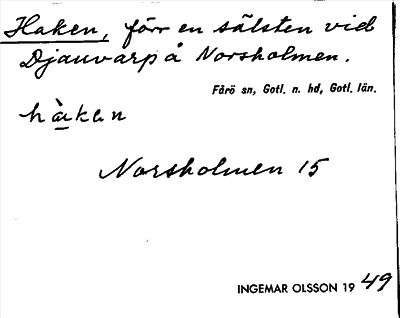 Haken, förr en sälsten vid
Djauvarp å Norsholmen.
Fårö sn, Gotl. n. hd, Gotl. län.
hàkɩn
Norsholmen 15
INGEMAR OLSSON 19 49